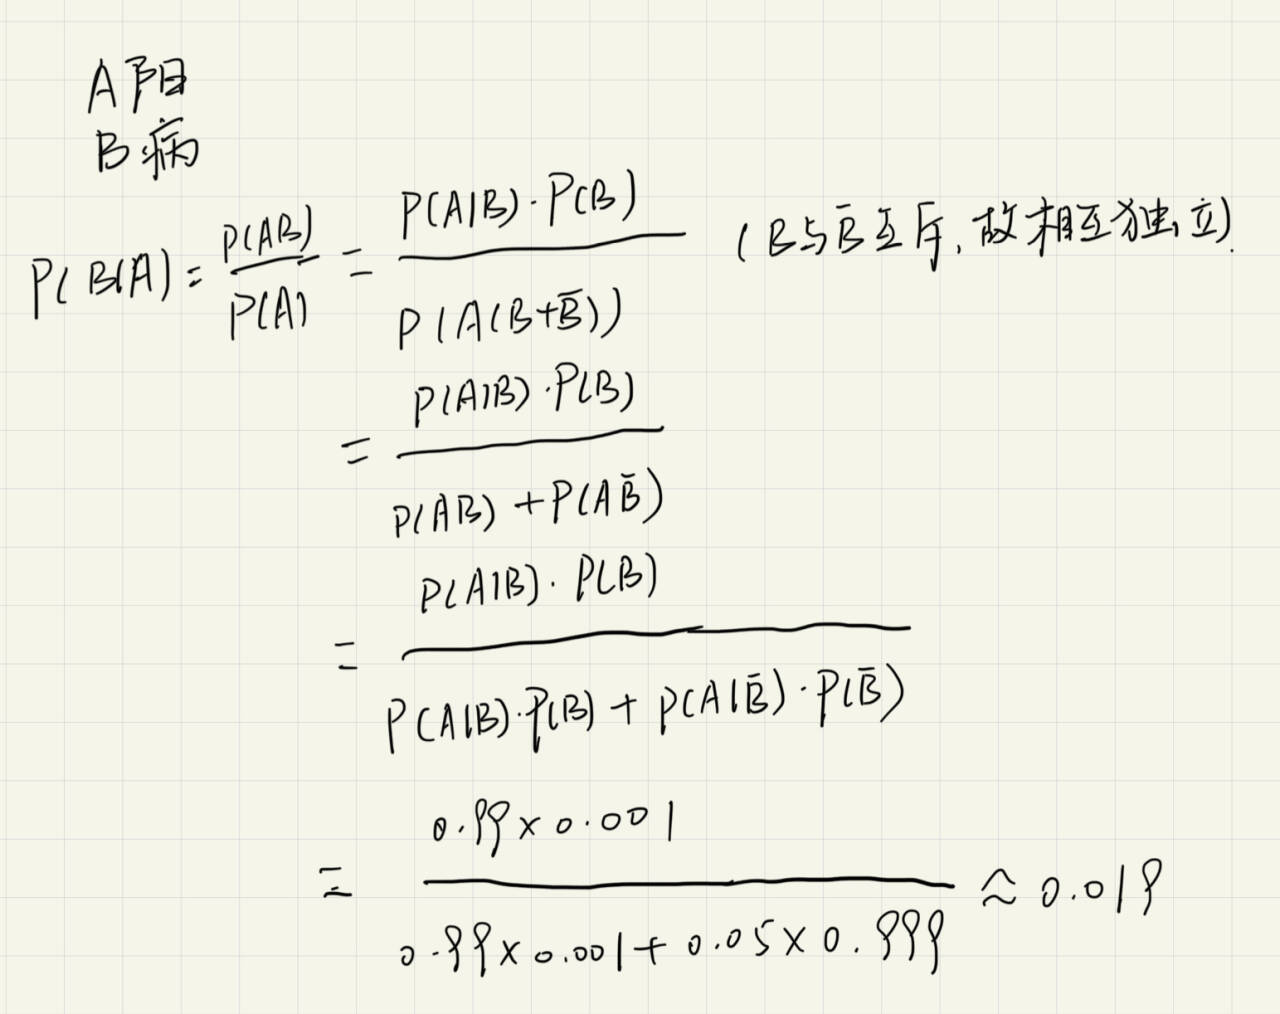 A阳
B病
P(B|A) = P(AB) / P(A) = P(A|B)·P(B) / P(A(B+B̄)) (B与B̄互斥,故相互独立).
= P(A|B)·P(B) / P(AB)+P(AB̄)
= P(A|B)·P(B) / P(A|B)·P(B)+P(A|B̄)·P(B̄)
= 0.99×0.001 / 0.99×0.001+0.05×0.999 ≈ 0.019